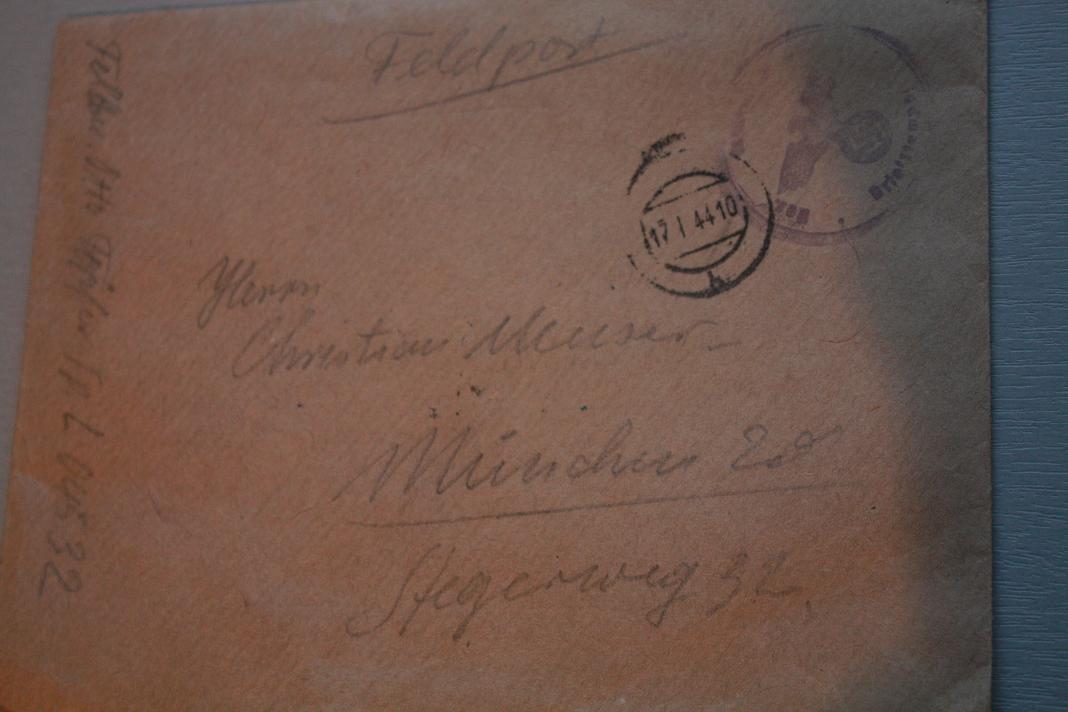 Feldpost
17 I 44 10
b
Briefstempel
Herrn
Christian Meuser
München 28
Stegerweg 32
Otto Fp L